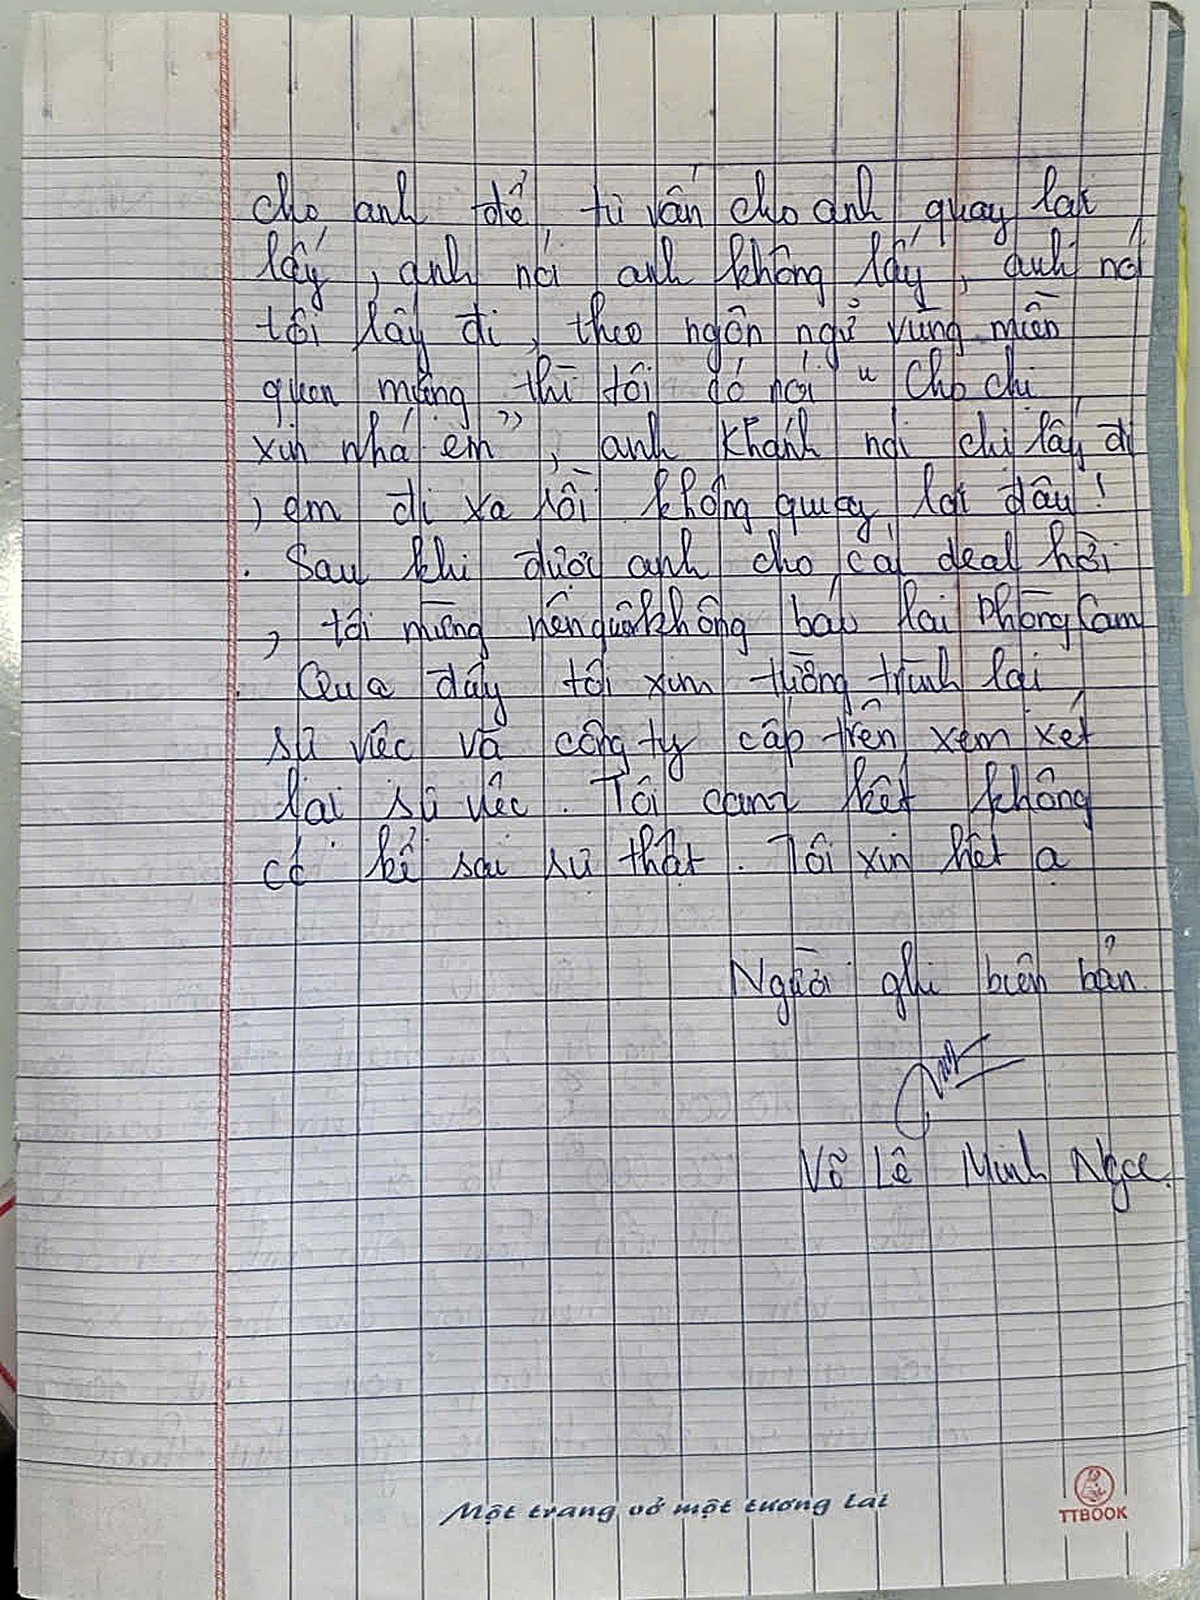 cho anh để tư vấn cho anh quay lại
lấy , anh nói anh không lấy , anh nói
tôi lấy đi , theo ngôn ngữ vùng miền
quen miệng thì tôi có nói “ Cho chị
xin nhá em ” , anh khách nói chị lấy đi
, em đi xa rồi không quay lại đâu !
. Sau khi được anh cho cái deal hời
, tôi mừng nên quên không báo lại Phòng Cam
. Qua đây tôi xin tường trình lại
sự việc và công ty cấp trên xem xét
lại sự việc . Tôi cam kết không
có kể sai sự thật . Tôi xin hết ạ
Người ghi biên bản .
Võ Lê Minh Ngọc .
Một trang vở một tương lai
TTBOOK